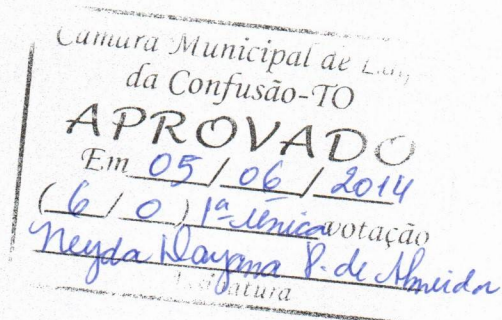 Câmara Municipal de
da Confusão-TO
APROVADO
Em 05 / 06 / 2014
( 6 / 0 ) 1ª única votação
Neyda Dayana P. de Almeida
Assinatura